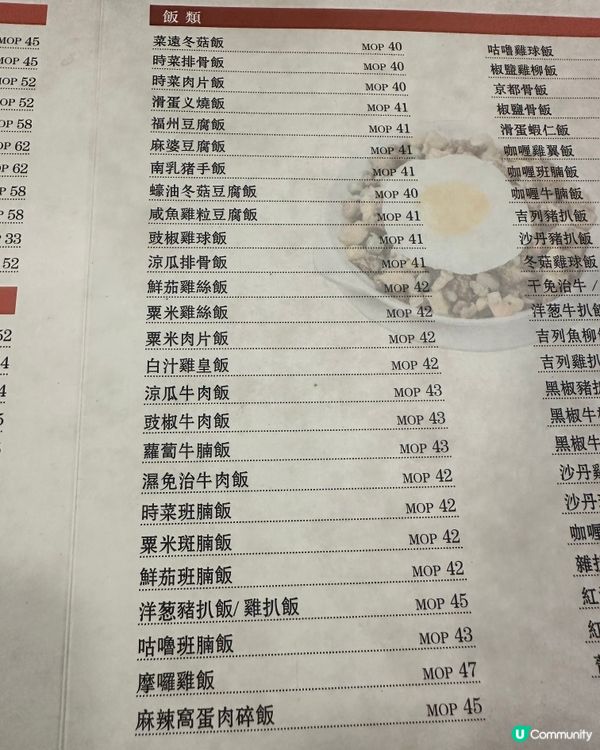 MOP 45
MOP 45
MOP 52
52
58
MOP 62
62
58
58
33
52
52
飯類
菜遠冬菇飯 MOP 40
時菜排骨飯 MOP 40
時菜肉片飯 MOP 40
滑蛋义燒飯 MOP 41
福州豆腐飯 MOP 41
麻婆豆腐飯 MOP 41
南乳猪手飯 MOP 41
蠔油冬菇豆腐飯 MOP 40
咸魚雞粒豆腐飯 MOP 41
豉椒雞球飯 MOP 41
涼瓜排骨飯 MOP 41
鮮茄雞絲飯 MOP 42
粟米雞絲飯 MOP 42
粟米肉片飯 MOP 42
白汁雞皇飯 MOP 42
涼瓜牛肉飯 MOP 43
豉椒牛肉飯 MOP 43
蘿蔔牛腩飯 MOP 43
濕免治牛肉飯 MOP 42
時菜班腩飯 MOP 42
粟米斑腩飯 MOP 42
鮮茄班腩飯 MOP 42
洋葱豬扒飯/雞扒飯 MOP 45
咕嚕班腩飯 MOP 43
摩囉雞飯 MOP 47
麻辣窩蛋肉碎飯 MOP 45
咕嚕雞球飯
椒鹽雞柳飯
京都骨飯
椒鹽骨飯
滑蛋蝦仁飯
咖喱雞翼飯
咖喱班腩飯
咖喱牛腩飯
吉列豬扒飯
沙丹豬扒飯
冬菇雞球飯
干免治牛 /
洋葱牛扒飯
吉列魚柳飯
吉列雞扒
黑椒豬扒
黑椒牛
黑椒牛
沙丹雞
沙丹
咖喱
雜扒
紅
紅
U Community